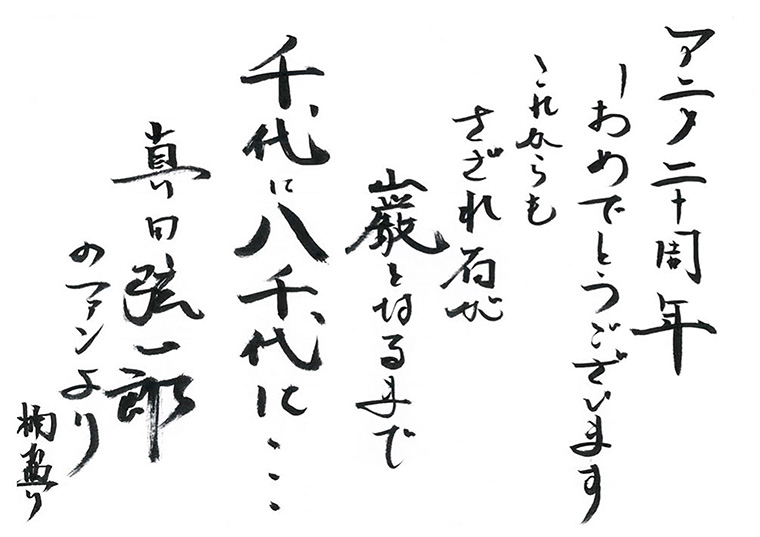 アニメ二十周年
おめでとうございます
これからも
さざれ石が
巌となるまで
千代に八千代に…
真田弦一郎
のファンより
楠